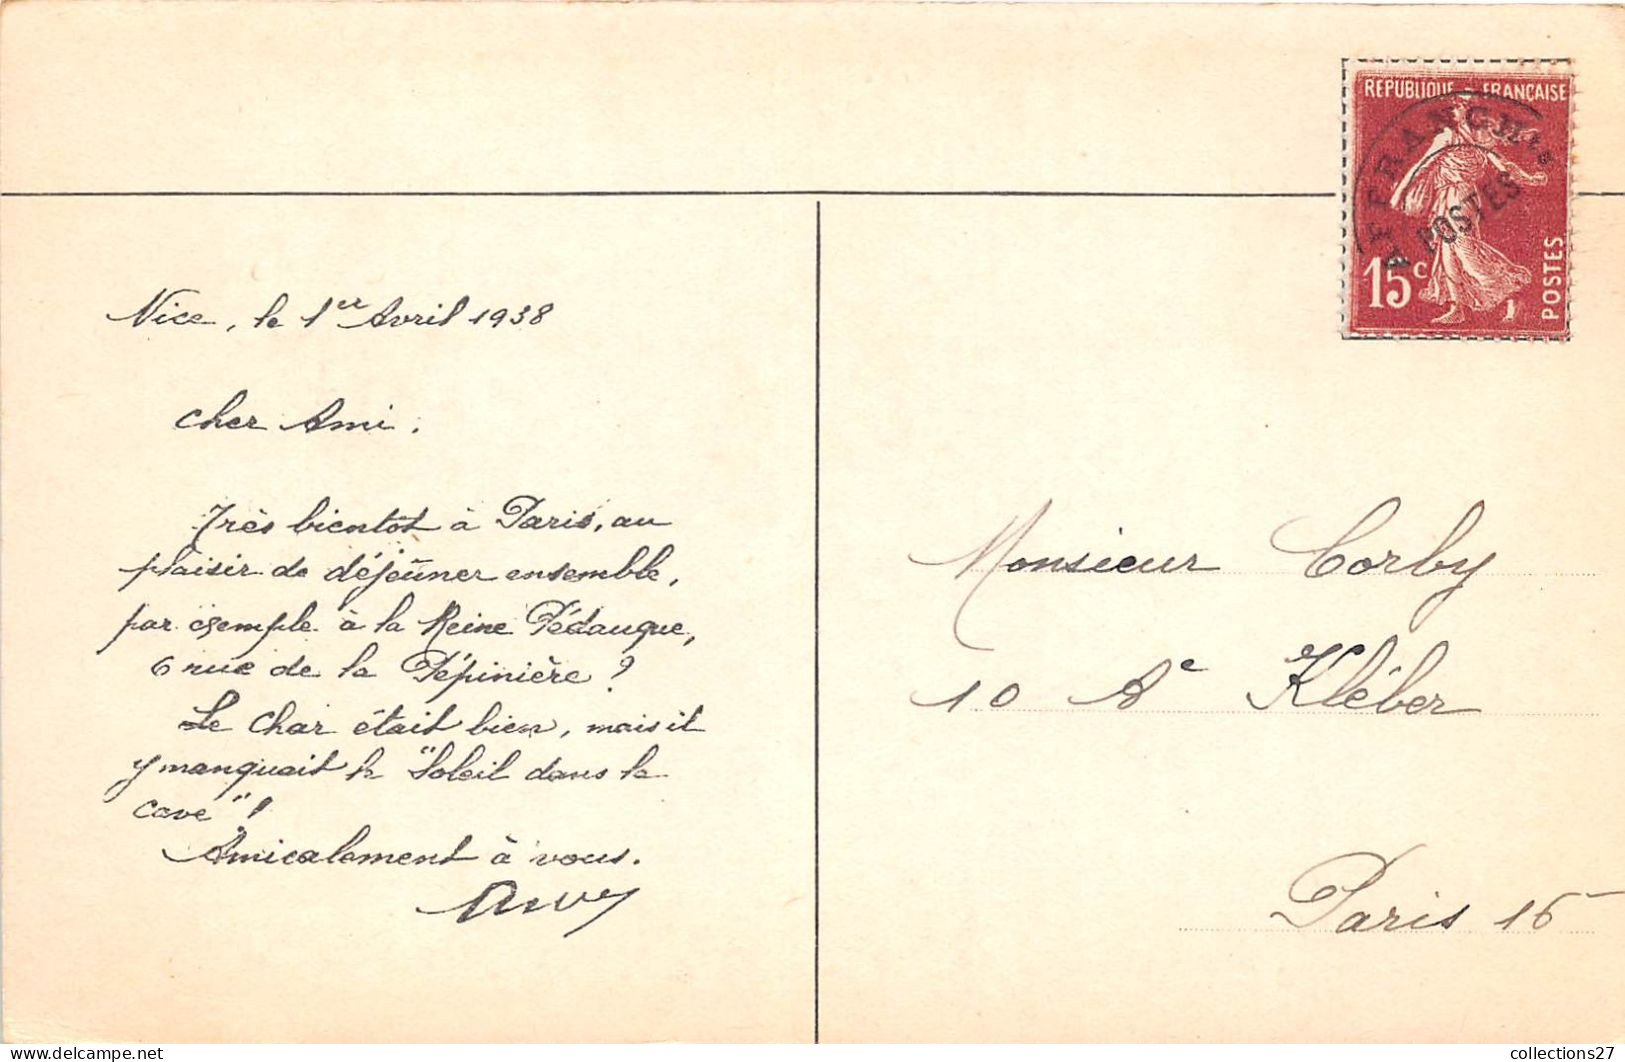 REPUBLIQUE FRANÇAISE
AFFRANCHts
POSTES
15c
POSTES
Nice, le 1er Avril 1938
Cher Ami.
Très bientôt à Paris, au
plaisir de déjeûner ensemble,
par exemple à la Reine Pédauque,
6 rue de la Pépinière ?
Le Char était bien, mais il
y manquait le "Soleil dans la
cave" !
Amicalement à vous.
Monsieur Corby
10 Ae Kléber
Paris 16
collections27